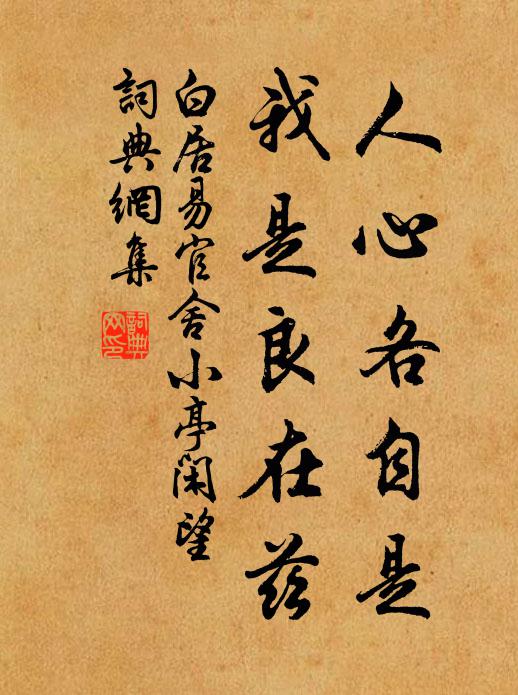 人心各自是
我是良在兹
白居易官舍小亭閑望
詞典網集
詞典網印